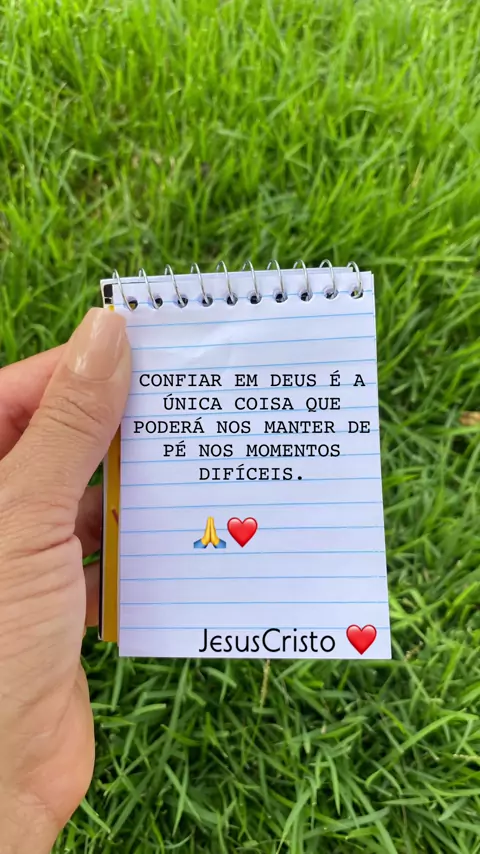 CONFIAR EM DEUS É A
ÚNICA COISA QUE
PODERÁ NOS MANTER DE
PÉ NOS MOMENTOS
DIFÍCEIS.
🙏❤️
JesusCristo ❤️